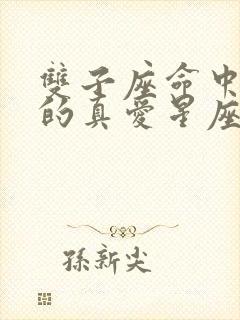 雙子座命中
的真愛星座
孫新尖